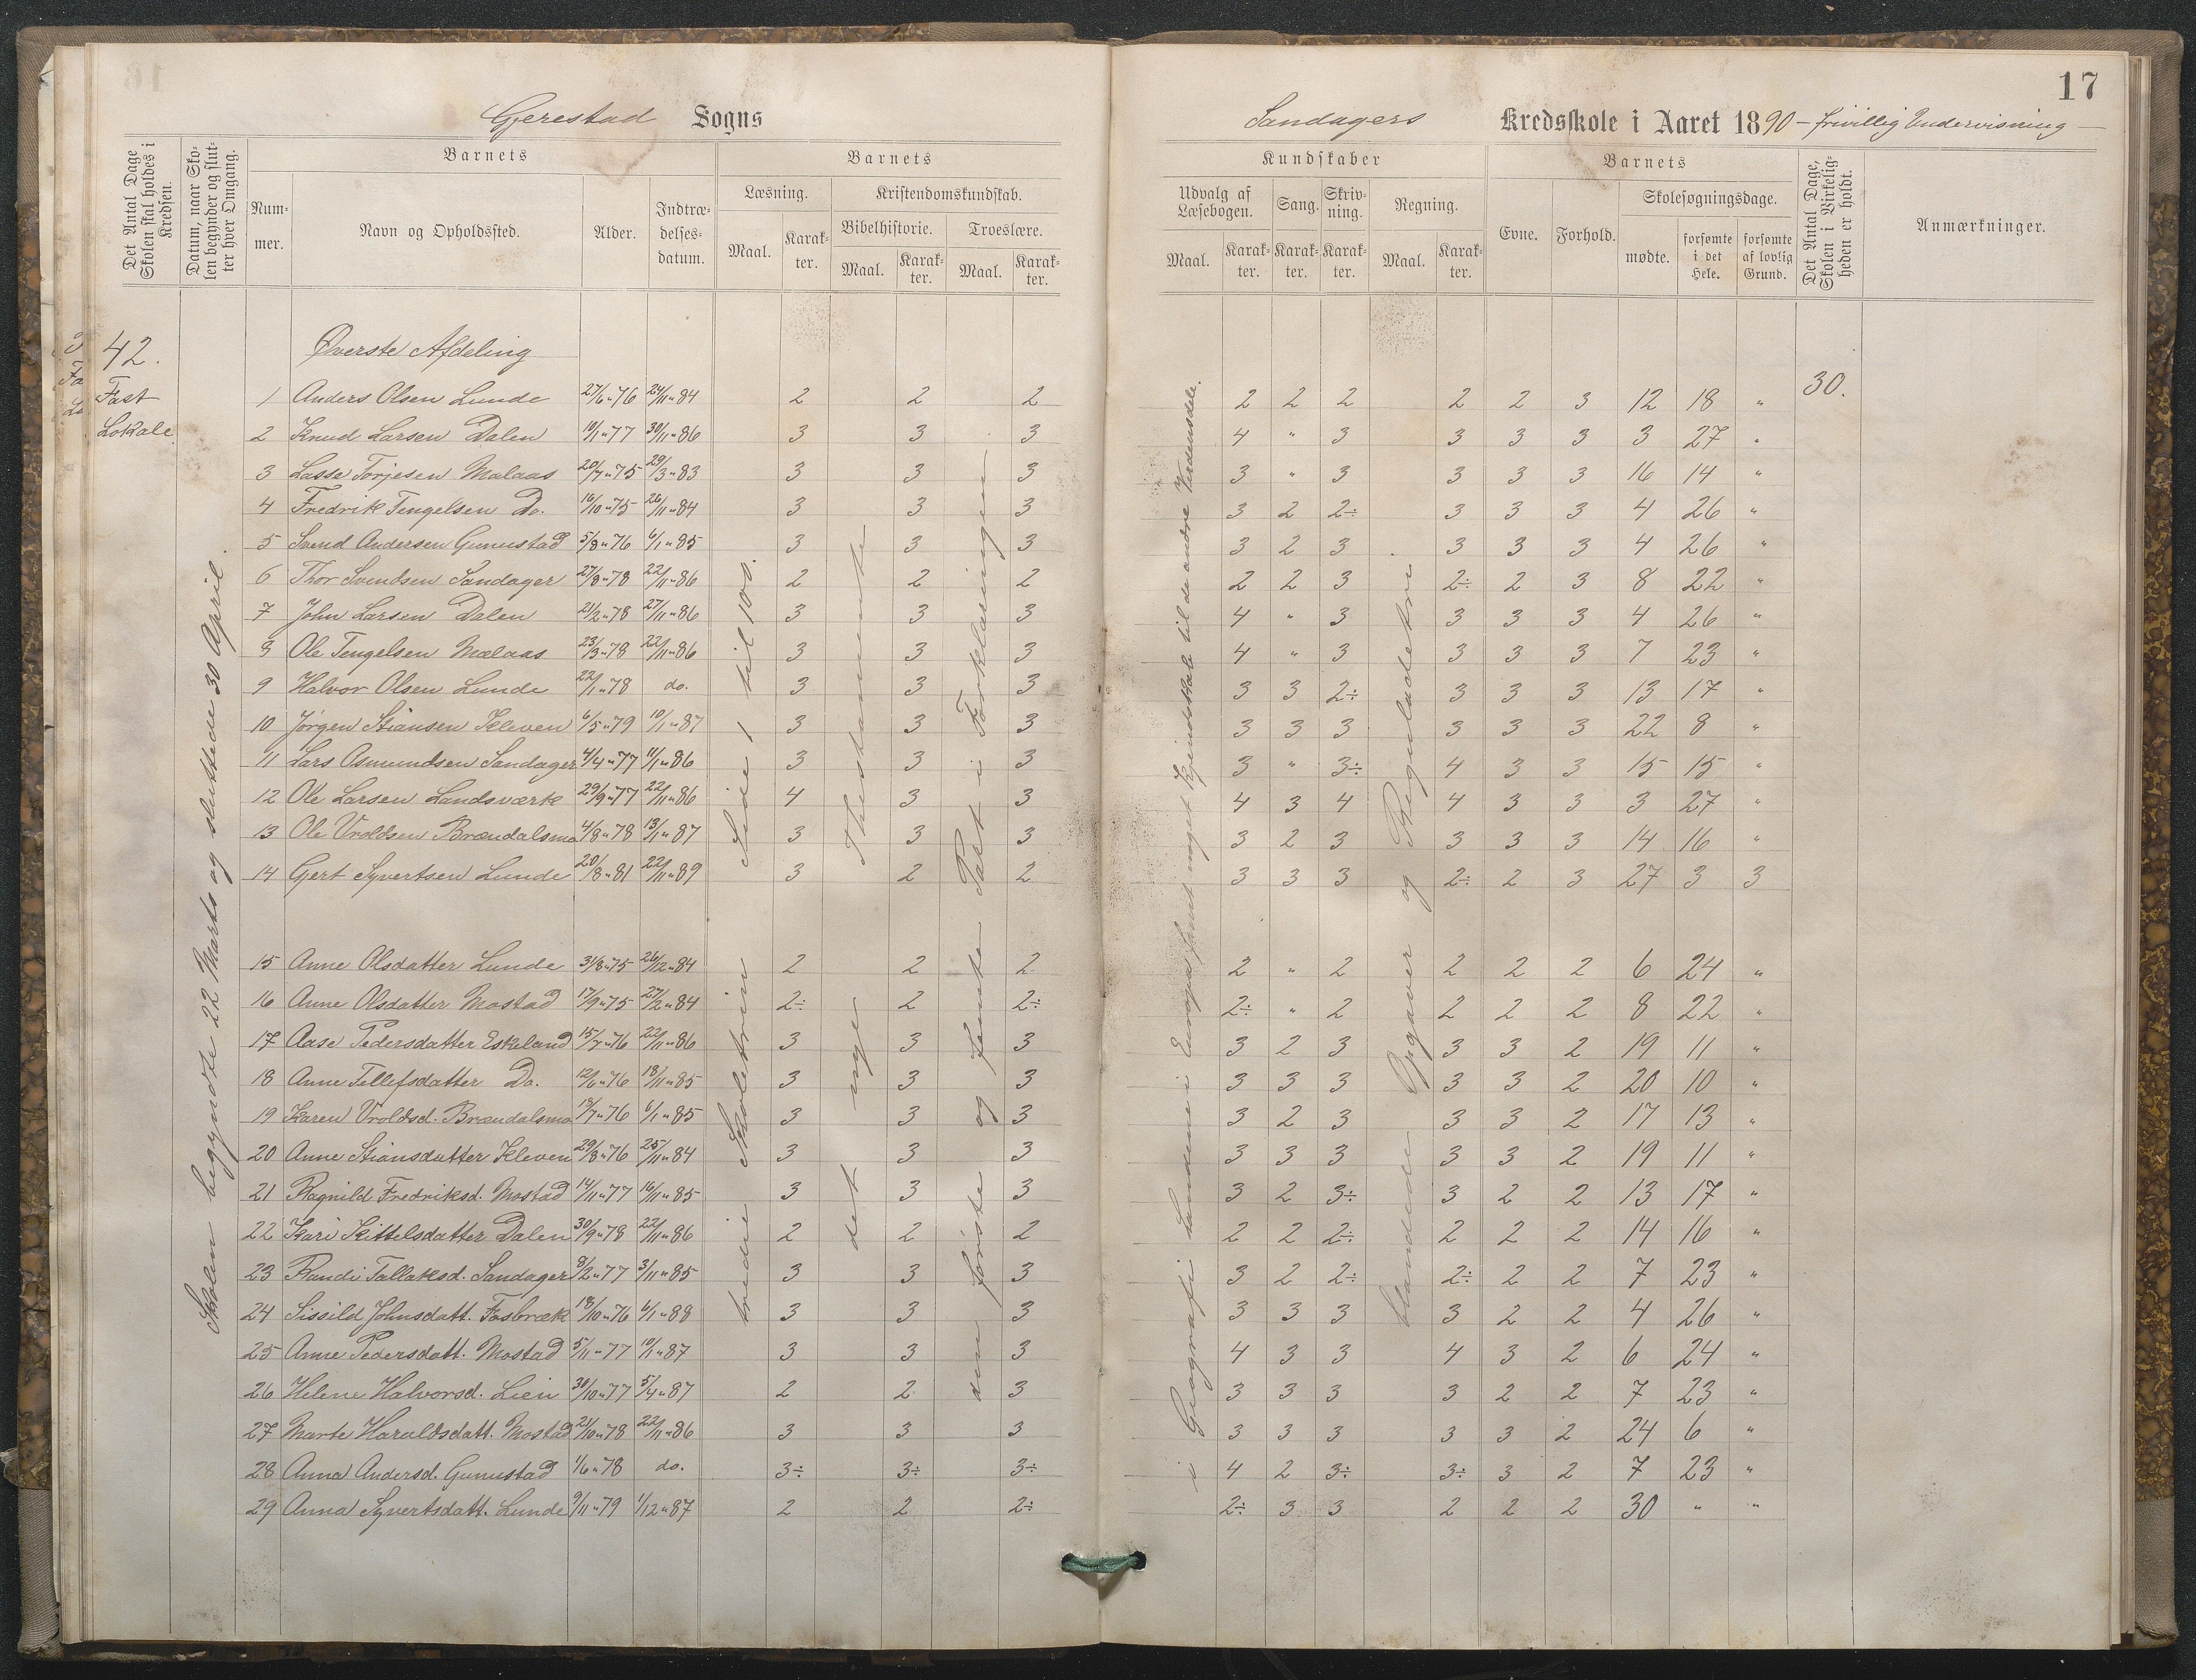 17
Gjerestad Sogns
Sandagers Kredsskole i Aaret 1890 – frivillig Undervisning –
Det Antal Dage Skolen skal holdes i Kredsen.
Datum, naar Skolen begynder og slutter hver Omgang.
Barnets
Nummer.
Navn og Opholdssted.
Alder.
Indtrædelsesdatum.
Barnets
Læsning.
Maal.
Karakter.
Kristendomskundskab.
Bibelhistorie.
Maal.
Karakter.
Troeslære.
Maal.
Karakter.
Kundskaber
Udvalg af Læsebogen.
Maal.
Karakter.
Sang.
Karakter.
Skrivning.
Karakter.
Regning.
Maal.
Karakter.
Barnets
Evne.
Forhold.
Skolesøgningsdage.
mødte.
forsømte i det Hele.
forsømte af lovlig Grund.
Det Antal Dage, Skolen i Virkeligheden er holdt.
Anmærkninger.
42.
Fast
Lokale.
Skolen begyndte 22 Marts og sluttede 30 April.
tredie Skoletrin Side 1 til 100.
det nye Thestamente
den første og femte Part i Forklaringen
i Geografi Landene i Europa samt noget Kjendskab til de andre Verdensdele.
blandede Opgaver og Reguladetri.
30.
Øverste Afdeling
1 Anders Olsen Lunde 27/6 " 76 24/11 " 84 2 2 2 2 2 2 2 2 3 12 18 "
2 Knud Larsen Dalen 10/1 " 77 30/11 " 86 3 3 3 4 " 3 3 3 3 3 27 "
3 Lasse Torjesen Malaas 20/7 " 75 29/3 " 83 3 3 3 3 " 3 3 3 3 16 14 "
4 Fredrik Tengelsen Do. 16/10 " 75 26/11 " 84 3 3 3 3 2 2÷ 3 3 3 4 26 "
5 Svend Andersen Gunustad 5/8 " 76 6/1 " 85 3 3 3 3 2 3 3 3 3 4 26 "
6 Thor Svendsen Sandager 27/8 " 78 22/11 " 86 2 2 2 2 2 3 2÷ 2 3 8 22 "
7 John Larsen Dalen 21/2 " 78 27/11 " 86 3 3 3 4 " 3 3 3 3 4 26 "
8 Ole Tengelsen Malaas 23/3 " 78 22/11 " 86 3 3 3 4 " 3 3 3 3 7 23 "
9 Halvor Olsen Lunde 22/1 " 78 do. 3 3 3 3 3 2÷ 3 3 3 13 17 "
10 Jørgen Stiansen Kleven 6/5 " 79 10/1 " 87 3 3 3 3 3 3 3 3 3 22 8 "
11 Lars Osmundsen Sandager 4/4 " 77 11/1 " 86 3 3 3 3 " 3÷ 4 3 3 15 15 "
12 Ole Larsen Landsværk 29/9 " 77 22/11 " 86 4 3 3 4 3 4 4 3 3 3 27 "
13 Ole Vroldsen Brændalsmo 4/8 " 78 13/1 " 87 3 3 3 3 2 3 3 3 3 14 16 "
14 Gert Syvertsen Lunde 20/8 " 81 22/11 " 89 3 2 2 3 3 3 2÷ 2 3 27 3 3
15 Anne Olsdatter Lunde 31/8 " 75 26/12 " 84 2 2 2 2 " 2 2 2 2 6 24 "
16 Anne Olsdatter Mostad 17/9 " 75 27/2 " 84 2÷ 2 2÷ 2÷ " 2 2 2 2 8 22 "
17 Aase Pedersdatter Eskeland 15/7 " 76 22/11 " 86 3 3 3 3 2 3 3 3 2 19 11 "
18 Anne Tellefsdatter Do. 12/6 " 76 18/11 " 85 3 3 3 3 3 3 3 3 2 20 10 "
19 Karen Vroldsd. Brændalsmo 19/7 " 76 6/1 " 85 3 3 3 3 2 3 3 3 2 17 13 "
20 Anne Stiansdatter Kleven 29/8 " 76 25/11 " 84 3 3 3 3 3 3 3 3 2 19 11 "
21 Ragnild Fredriksd. Mostad 14/11 " 77 16/11 " 85 3 3 3 3 2 3÷ 3 2 2 13 17 "
22 Kari Kittelsdatter Dalen 30/9 " 78 22/11 " 86 2 2 2 2 2 2÷ 2 2 2 14 16 "
23 Randi Tallaksd. Sandager 8/2 " 77 3/11 " 85 3 3 3 3 2 2÷ 2÷ 2 2 7 23 "
24 Sissild Johnsdatt. Fosbræk 18/10 " 76 6/1 " 88 3 3 3 3 3 3 3 2 2 4 26 "
25 Anne Pedersdatt. Mostad 5/11 " 77 10/1 " 87 3 3 3 4 3 3 4 3 2 6 24 "
26 Helene Halvorsd. Lien 30/10 " 77 5/4 " 87 2 2 3 3 3 3 3 2 2 7 23 "
27 Marte Haraldsdatt. Mostad 21/10 " 78 22/11 " 86 3 3 3 3 3 3 3 3 2 24 6 "
28 Anna Andersd. Gunustad 1/6 " 78 do. 3÷ 3÷ 3÷ 4 2 3÷ 3÷ 3 2 7 23 "
29 Anna Syvertsdatt. Lunde 9/11 " 79 1/12 " 87 2 2 2÷ 2÷ 3 3 2 2 2 30 " "